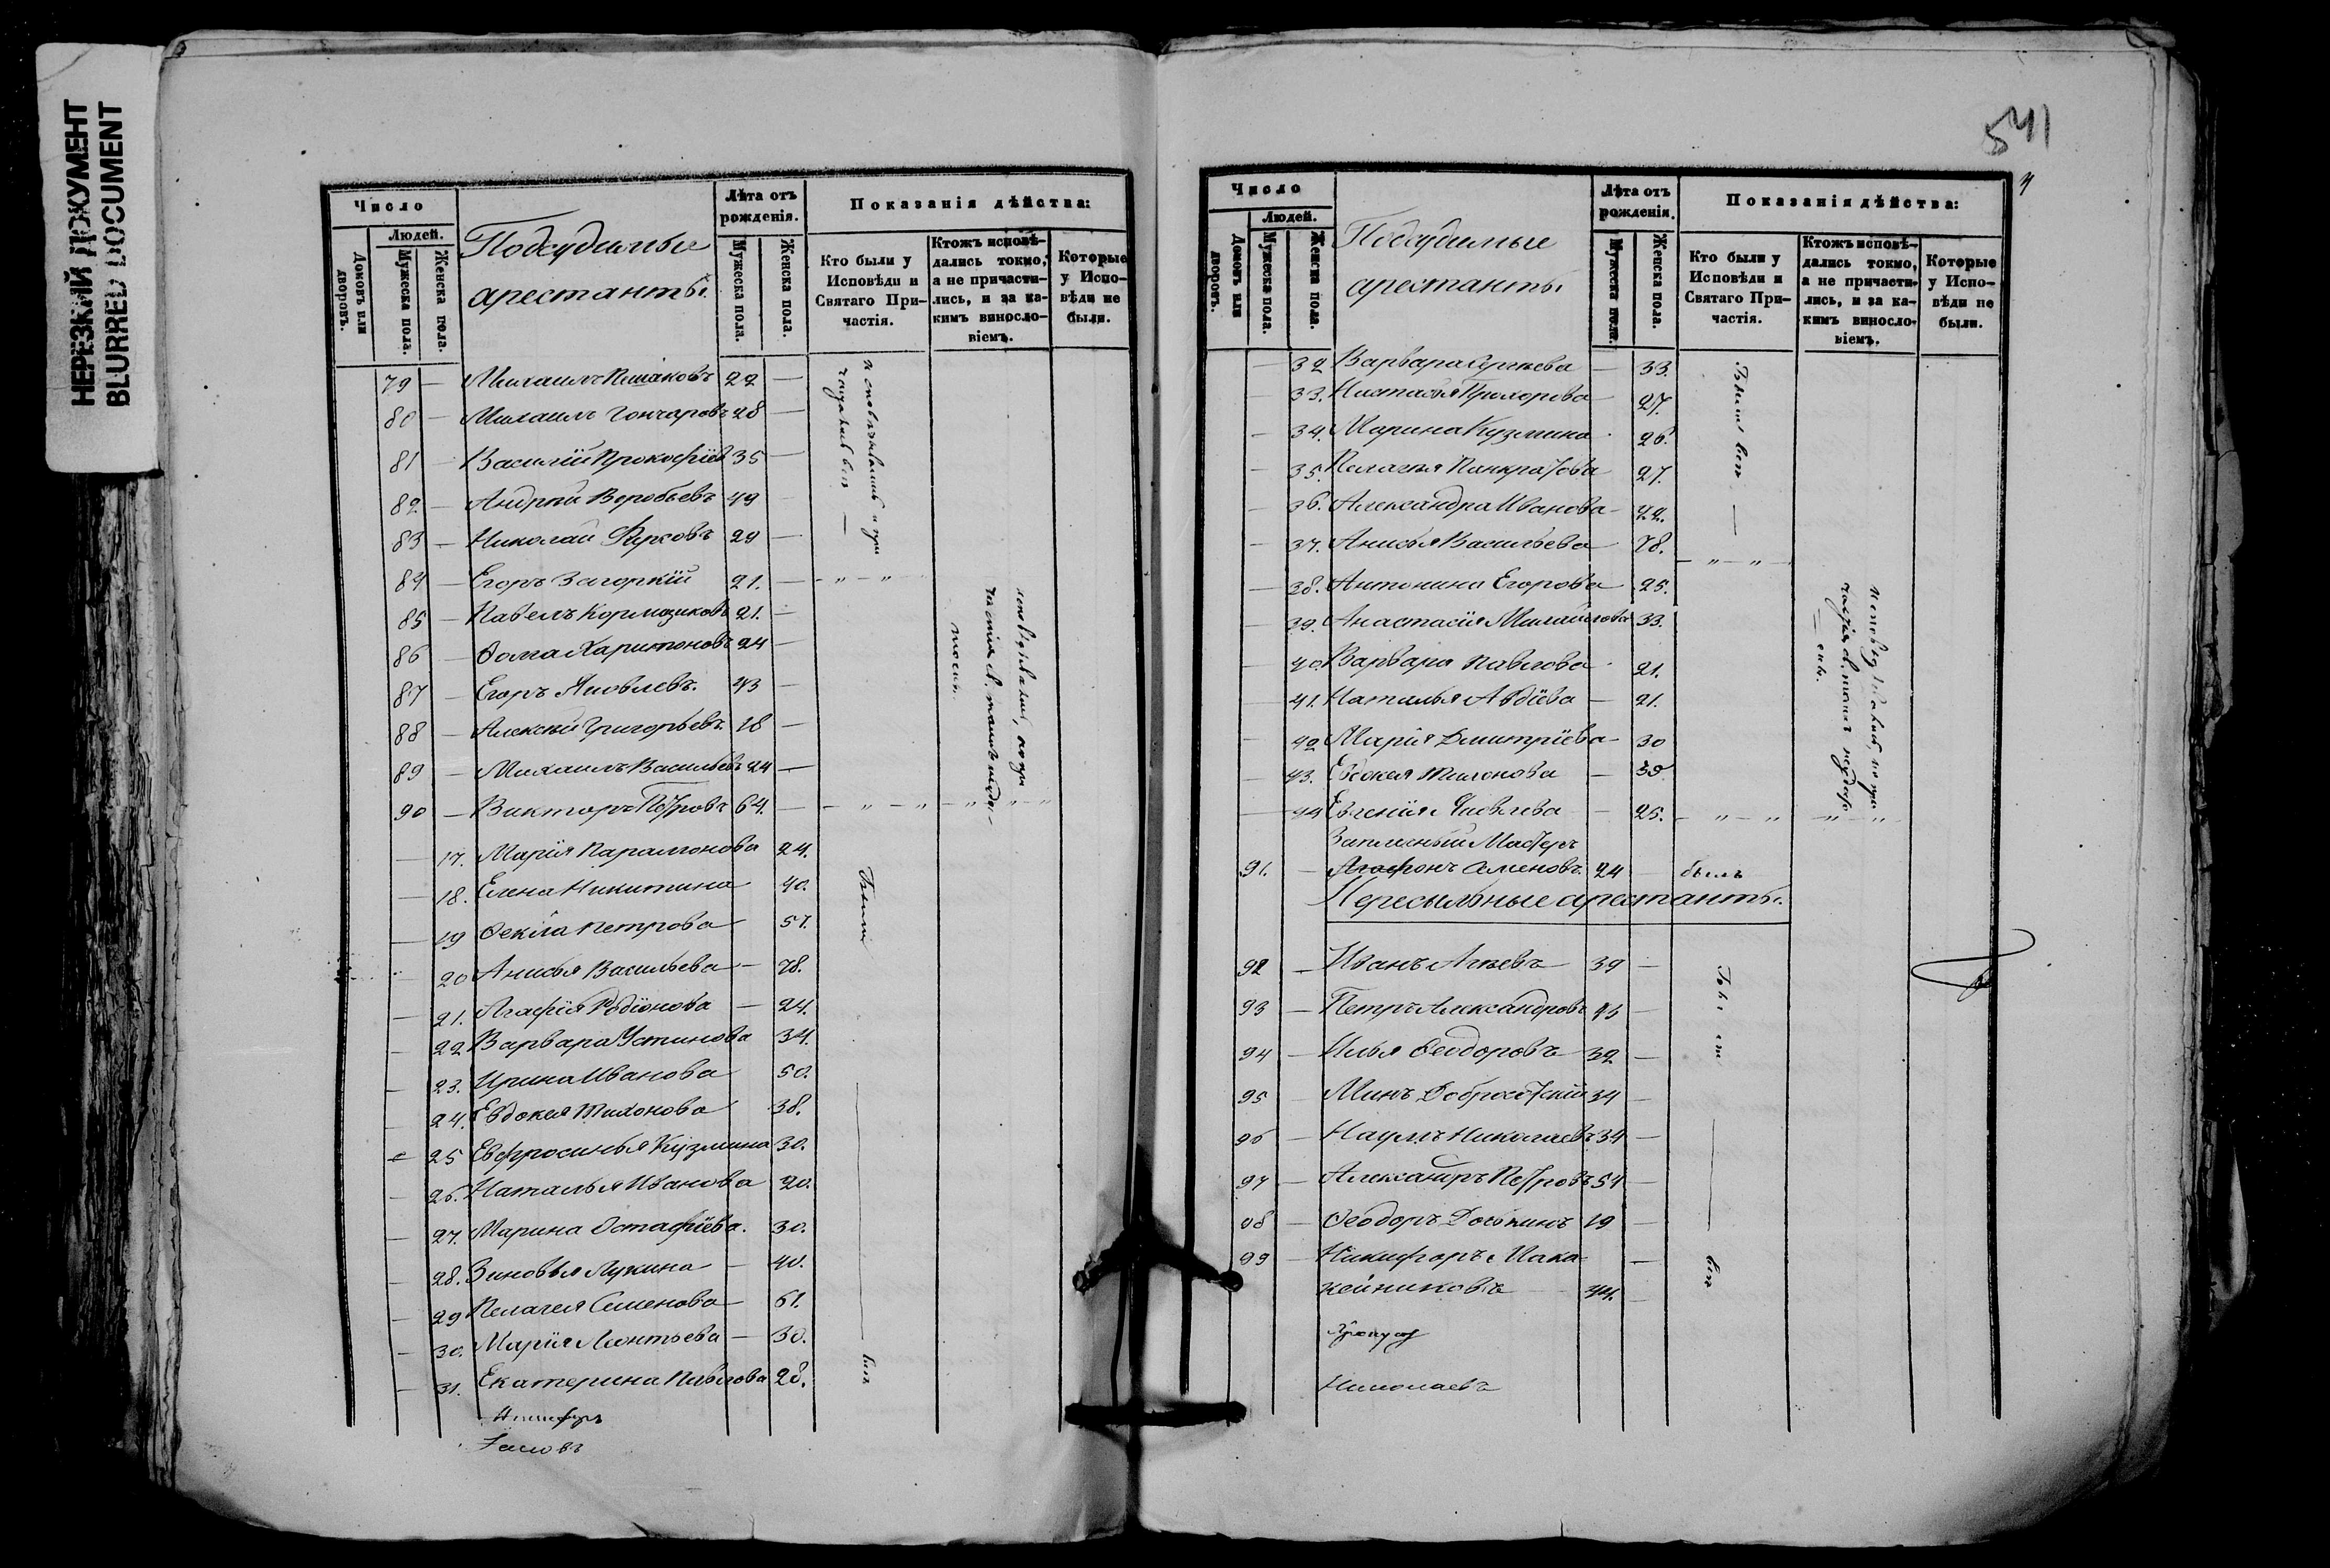 НЕРЕЗКИЙ ДОКУМЕНТ
BLURRED DOCUMENT
Число
Людей.
Домовъ или дворовъ.
Мужеска пола.
Женска пола.
Подсудимые
арестанты.
Лѣта отъ рожденія.
Мужеска пола.
Женска пола.
Показанія дѣйства:
Кто были у Исповѣди и Святаго Причастія.
Ктожъ исповѣ-
дались токмо,
а не причасти-
лись, и за ка-
кимъ винособло-
віемъ.
Которые
у Испо-
вѣди не
были.
79 — Михаилъ 22 —
80 — Михаилъ Гончаровъ 28 —
81 — Василій Прокофіев 35 —
82 — Андрей Воробьевъ 49 —
83 — Николай Фирсовъ 29 —
84 — Егоръ Загоркій 21. — - „ - „
85 — Павелъ Кормазиковъ 21. —
86 — Ѳома Харитоновъ 24 —
87 — Егоръ Яковлевъ. 43 —
88 — Алексѣй Григорьевъ. 18 —
89 — Михаилъ Васильевъ 24 —
90 — Викторъ Петровъ 64. — - „ - „ - „ - „
— 17. Марія Парамонова 24.
— 18. Елена Никитина 40.
— 19 Ѳекла Петрова 57.
— 20 Анисья Васильева — 78.
— 21. Агафія Родіонова — 24.
— 22 Варвара Устинова 34.
— 23. Ирина Иванова 50.
— 24. Евдокея Тихонова 38.
— 25 Евфросинья Кузмина 30.
— 26. Наталья Иванова 20.
— 27. Марина Остафіева. 30.
— 28. Зиновья Лукина — 40.
— 29 Пелагея Семенова — 61.
— 30. Марія Леонтьева — 30.
— 31. Екатерина Павлова 28.
Были
всѣ
541
Число
Людей.
Домовъ или дворовъ.
Мужеска пола.
Женска пола.
Подсудимые
арестанты
Лѣта отъ рожденія.
Мужеска пола.
Женска пола.
Показанія дѣйства:
Кто были у Исповѣди и Святаго Причастія.
Ктожъ исповѣ-
дались токмо,
а не причасти-
лись, и за ка-
кимъ виносло-
віемъ.
Которые
у Испо-
вѣди не
были.
— 32 Варвара Сергѣева — 33.
— 33. Настасья Прохорова 27.
— 34. Марина Кузмина 26.
— 35. Пелагея Панкратова 27.
— 36. Александра Иванова — 42.
— 37. Анисья Васильева 78. — „ — „
— 38. Антонина Егорова 25.
— 39. Анастасія Михайлова 33.
— 40. Варвара Павлова 21.
— 41. Наталья Авдіева — 21.
— 42 Марія Дмитріева — 30
— 43. Евдокея Тихонова — 38
— 44 Евгенія Яковлева — 25. — „ — „ — „ — „
Мастеръ
91. — 24 — былъ
Пересыльные арестанты.
92 — Иванъ Агѣевъ 39 —
93 — Петръ Александровъ 43 —
94 — Илья Ѳеодоровъ 32 —
95 — Минъ Добросотскій 34 —
96 — Наумъ Николаевъ 34 —
97 — Александръ Петровъ 54 —
98 — Ѳеодоръ 19 —
99 — Никифоръ Мака-
44. —
Были
всѣ
Николаевъ